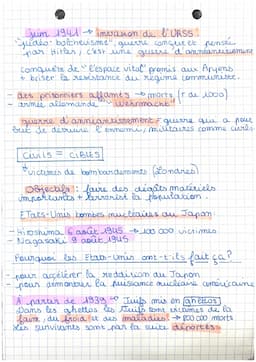 juin 1941 → invasion de l'URSS
"judéo-bolchévisme", guerre conçue et pensée
par Hitler, c'est une guerre d'anéantissement
conquête de "l'espace vital" promis aux Aryens
+ briser la résistance du régime communiste.
- des prisonniers affamés → morts (+ de 1000)
- armée allemande "Wehrmacht"
guerre d'anéantissement = guerre qui a pour
but de détruire l'ennemi, militaires comme civils
CIVILS = CIBLES
victimes de bombardements (Londres)
Objectifs : faire des dégâts matériels
importants + terroriser la population.
Etats-Unis bombes nucléaires au Japon
- Hiroshima 6 août 1945 → 100 000 victimes
- Nagasaki 9 août 1945
Pourquoi les Etats-Unis ont-t-ils fait ça ?
- pour accélérer la reddition du Japon
- pour démontrer la puissance nucléaire américaine
À partir de 1939 → Juifs mis en ghettos
Dans les ghettos les Juifs sont victimes de la
faim, du froid et des maladies. → 800 000 morts
les survivants sont par la suite déportés.